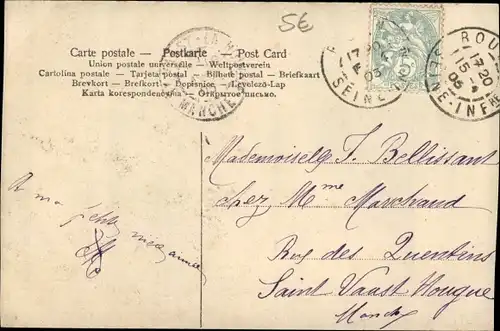 5E
Carte postale — Postkarte — Post Card
Union postale universelle — Weltpostverein
Cartolina postale — Tarjeta postal — Bilhete postal — Briefkaart
Brevkort — Brefkort — Dopisnice — Levelező-Lap
Karta korespondencyjna — Открытое письмо.
MANCHE
17 20
05
SEINE
ROU
17 20
15
05
NE-INFRE
Mademoiselle J. Bellissant
chez Mme Marchand
Rue des Quentins
Saint Vaast Hougue
Manche
A ma petite